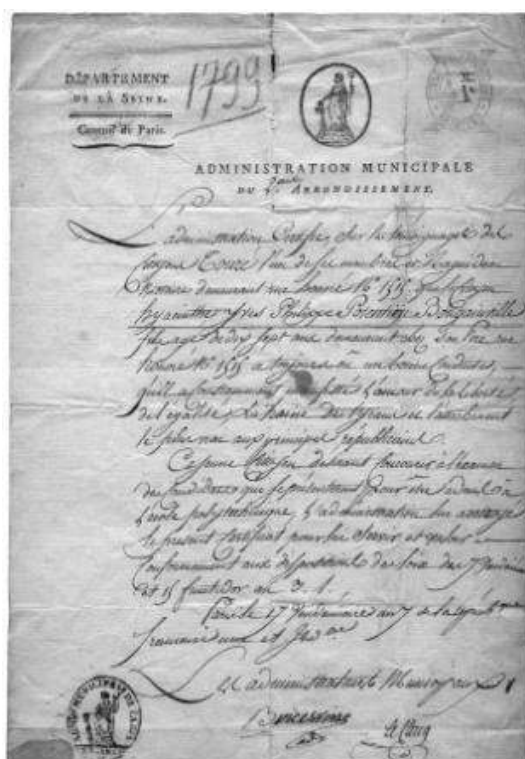 DÉPARTEMENT
DE LA SEINE.
Canton de Paris.
1799
ADMINISTRATION MUNICIPALE
DU 2.e ARRONDISSEMENT.
L'administration Certifie, Sur le témoignage des
Citoyens l'un de ses membres et
Notaire demeurant rue honoré No 1515 que le Citoyen
hyacinthe Yves Philippe Potentien Bougainville
agé de dix sept ans demeurant chez Son Père rue
honoré No 1515 a toujours eu une bonne Conduite,
qu'il a constamment manifesté L'amour de la Liberté,
de l'égalité, La haine des tyrans et l'attachement
le plus vrai aux principes républicains.
Ce jeune Citoyen désirant Concourir à l'examen
des Candidats que se présentent pour être admis à
L'école polytechnique L'administration lui
le présent Certificat pour lui Servir et valoir
Conformément aux dispositions des loix des 7 Vendémiaire
et 15 fructidor an 3.
Paris le 17 Vendémiaire an 7 de la république
francaise une et Ind.ble
Les administrateurs Municipaux